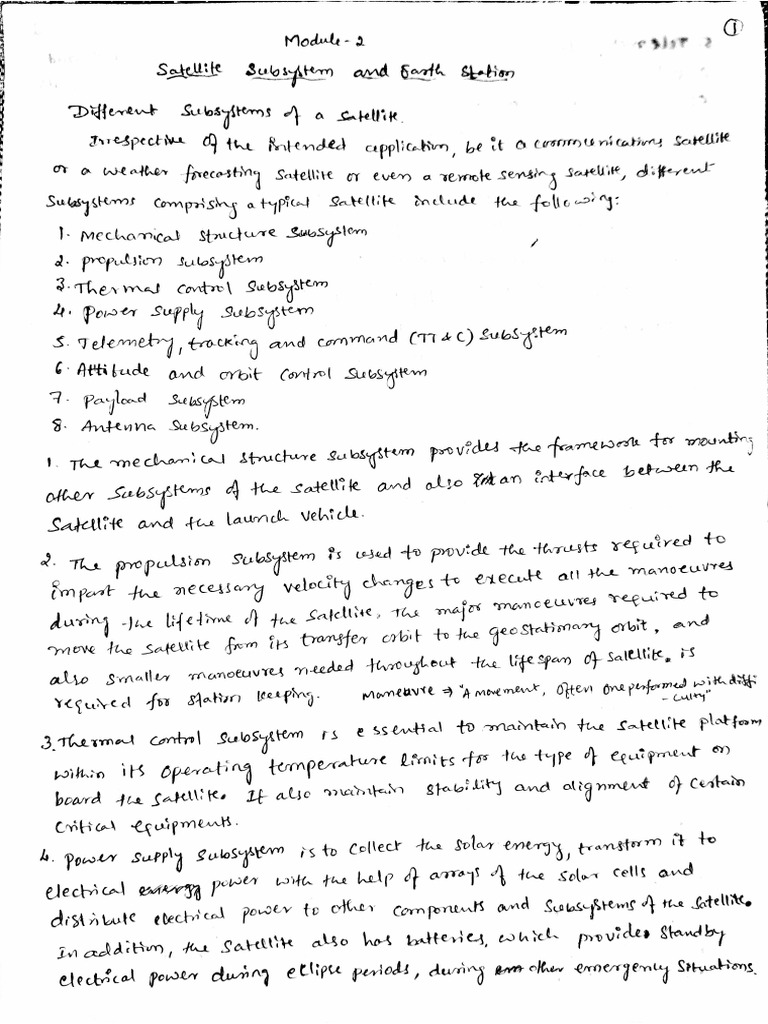 1
Module-2
Satellite Subsystem and Earth Station
Different Subsystems of a Satellite.
Irrespective of the intended application, be it a communications satellite
or a weather forecasting satellite or even a remote sensing satellite, different
subsystems comprising a typical satellite include the following:
1. Mechanical structure subsystem
2. propulsion subsystem
3. Thermal control subsystem
4. Power supply subsystem
5. Telemetry, tracking and command (TT & C) subsystem
6. Attitude and orbit control subsystem
7. Payload subsystem
8. Antenna subsystem.
1. The mechanical structure subsystem provides the framework for mounting
other subsystems of the satellite and also an interface between the
satellite and the launch vehicle.
2. The propulsion subsystem is used to provide the thrusts required to
impart the necessary velocity changes to execute all the manoeuvres
during the lifetime of the satellite, The major manoeuvres required to
move the satellite from its transfer orbit to the geostationary orbit, and
also smaller manoeuvres needed throughout the lifespan of satellite. is
required for station keeping. Maneuvre ⇒ "A movement, often one performed with diffi
-culty"
3. Thermal control subsystem is essential to maintain the satellite platform
within its operating temperature limits for the type of equipment on
board the satellite. It also maintain stability and alignment of certain
critical equipments.
4. Power supply subsystem is to collect the solar energy, transform it to
electrical power with the help of arrays of the solar cells and
distribute electrical power to other components and subsystems of the satellite.
In addition, the satellite also has batteries, which provides standby
electrical power during eclipse periods, during other emergency situations.